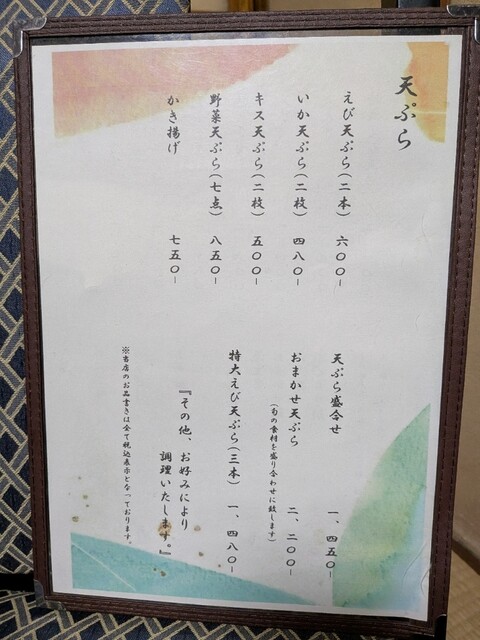 天ぷら
えび天ぷら(二本) 六〇〇-
いか天ぷら(二枚) 四八〇-
キス天ぷら(二枚) 五〇〇-
野菜天ぷら(七点) 八五〇-
かき揚げ 七五〇-
天ぷら盛合せ 一、四五〇-
おまかせ天ぷら 二、二〇〇-
(旬の食材を盛り合わせに致します)
特大えび天ぷら(三本) 一、四八〇-
『その他、お好みにより
調理いたします。』
※当店のお品書きは全て税込表示となっております。